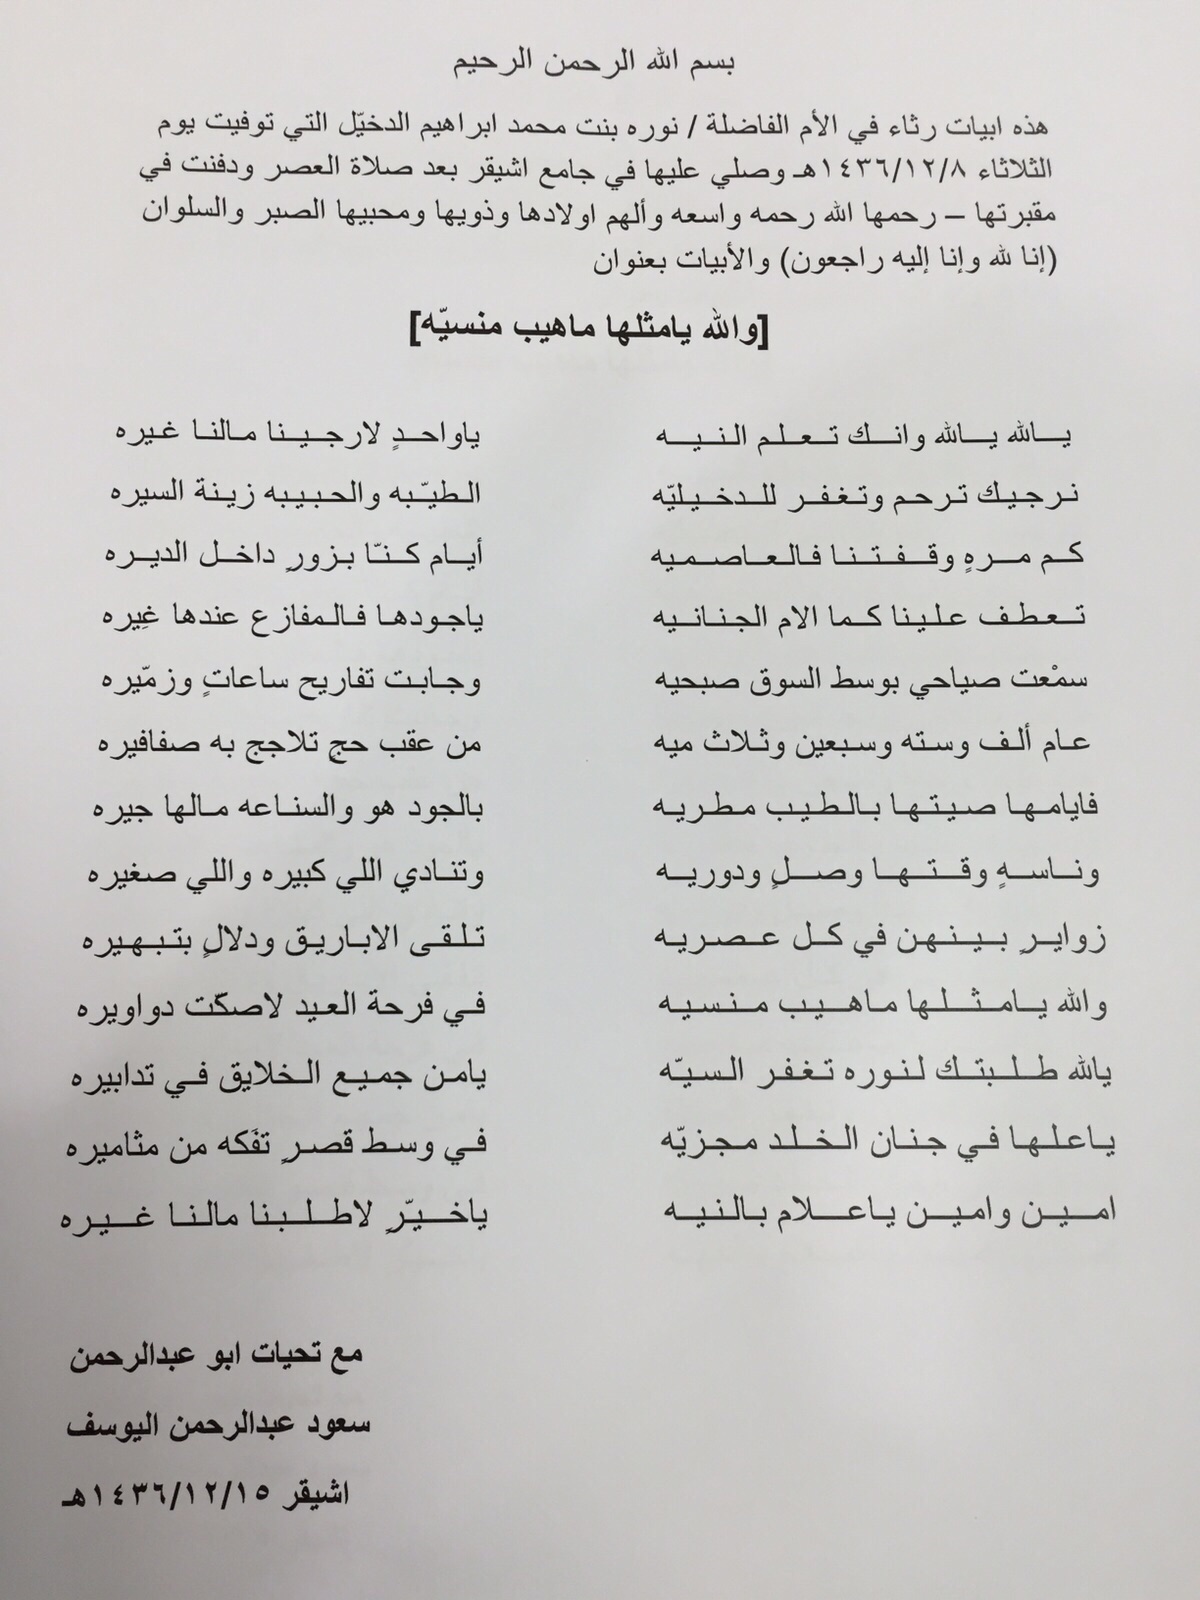 بسم الله الرحمن الرحيم
هذه ابيات رثاء في الأم الفاضلة / نوره بنت محمد ابراهيم الدخيّل التي توفيت يوم
الثلاثاء ١٤٣٦/١٢/٨هـ وصلي عليها في جامع اشيقر بعد صلاة العصر ودفنت في
مقبرتها – رحمها الله رحمه واسعه وألهم اولادها وذويها ومحبيها الصبر والسلوان
(إنا لله وإنا إليه راجعون) والأبيات بعنوان
[والله يامثلها ماهيب منسيّه]
يالله يالله وانك تعلم النيه ياواحدٍ لارجينا مالنا غيره
نرجيك ترحم وتغفر للدخيليّه الطيّبه والحبيبه زينة السيره
كم مرهٍ وقفتنا فالعاصميه أيام كنّا بزورٍ داخل الديره
تعطف علينا كما الام الجنانيه ياجودها فالمفازع عندها غِيره
سمْعت صياحي بوسط السوق صبحيه وجابت تفاريح ساعاتٍ وزمّيره
عام ألف وسته وسبعين وثلاث ميه من عقب حجٍ تلاجج به صفافيره
فايامها صيتها بالطيب مطريه بالجود هو والسناعه مالها جيره
وناسهٍ وقتها وصلٍ ودوريه وتنادي اللي كبيره واللي صغيره
زوايرٍ بينهن في كل عصريه تلقى الاباريق ودلالٍ بتبهيره
والله يامثلها ماهيب منسيه في فرحة العيد لاصكّت دواويره
يالله طلبتك لنوره تغفر السيّه يامن جميع الخلايق في تدابيره
ياعلها في جنان الخلد مجزيّه في وسط قصرٍ تفَكه من مثاميره
امين وامين ياعلام بالنيه ياخيّرٍ لاطلبنا مالنا غيره
مع تحيات ابو عبدالرحمن
سعود عبدالرحمن اليوسف
اشيقر ١٤٣٦/١٢/١٥هـ